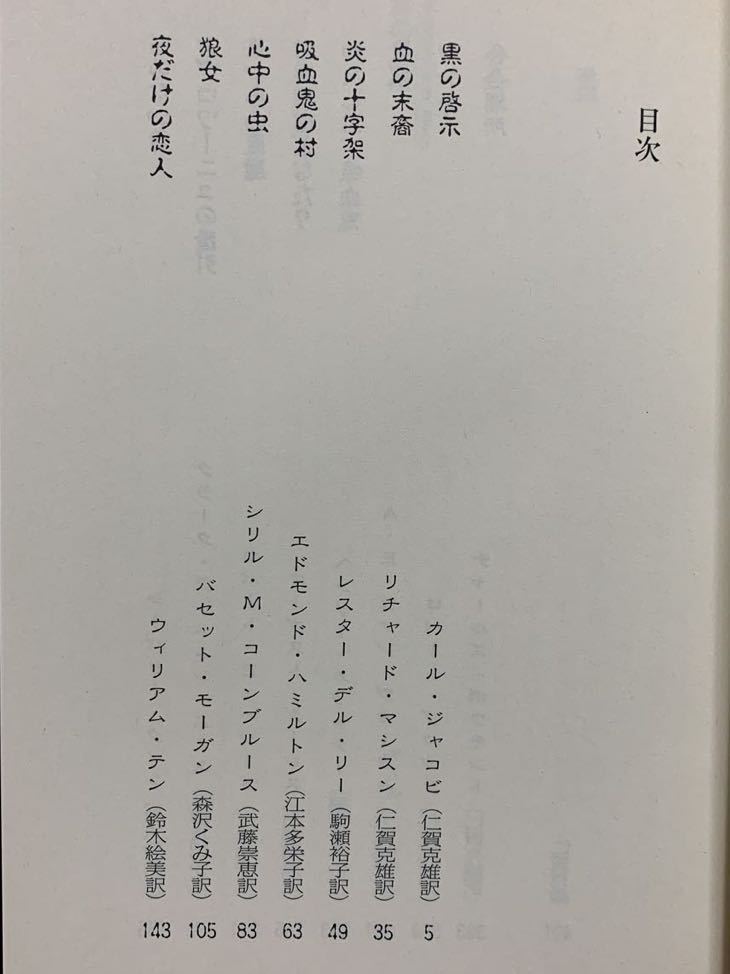 目次
黒の啓示 カール・ジャコビ(仁賀克雄訳) 5
血の末裔 リチャード・マシスン(仁賀克雄訳) 35
炎の十字架 レスター・デル・リー(駒瀬裕子訳) 49
吸血鬼の村 エドモンド・ハミルトン(江本多栄子訳) 63
心中の虫 シリル・M・コーンブルース(武藤崇恵訳) 83
狼女 バセット・モーガン(森沢くみ子訳) 105
夜だけの恋人 ウィリアム・テン(鈴木絵美訳) 143